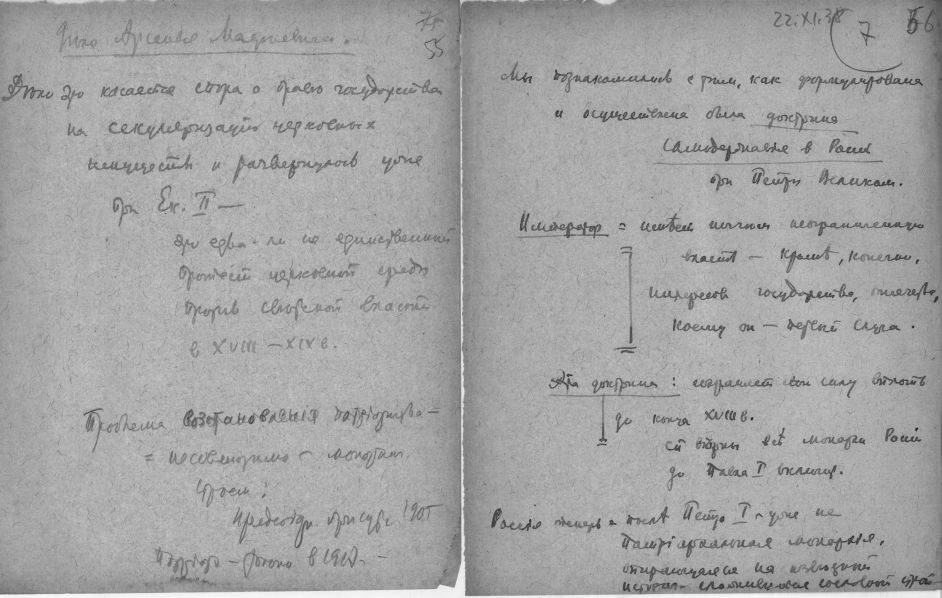 75
55
Дело Арсения Мацеевича.
Дело это касается спора о праве государства
на секуляризацию церковных
имуществ и развернулось уже
при Ек. II —
это едва-ли не единственный
протест церковной среды
против светской власти
в XVIII – XIX в.
Проблема возстановленія патріаршества —
= несовместимо с монархич.
строем:
1905
в 1917. –
22.XI.38
7
56
Мы познакомились с тем, как формулирована
и осуществлена была доктрина
самодержавія в Россіи
при Петре Великом.
Император = ничем неограниченную
власть – кроме, конечно,
интересов государства, отечества,
коему он – первый слуга.
Эта доктрина: сохраняет свою силу вплоть
до конца XVIII в.
ей верны все монархи Россіи
до Павла I включит.
Россія теперь после Петра I – уже не
патріархальная монархія,
опирающаяся на
сословный строй